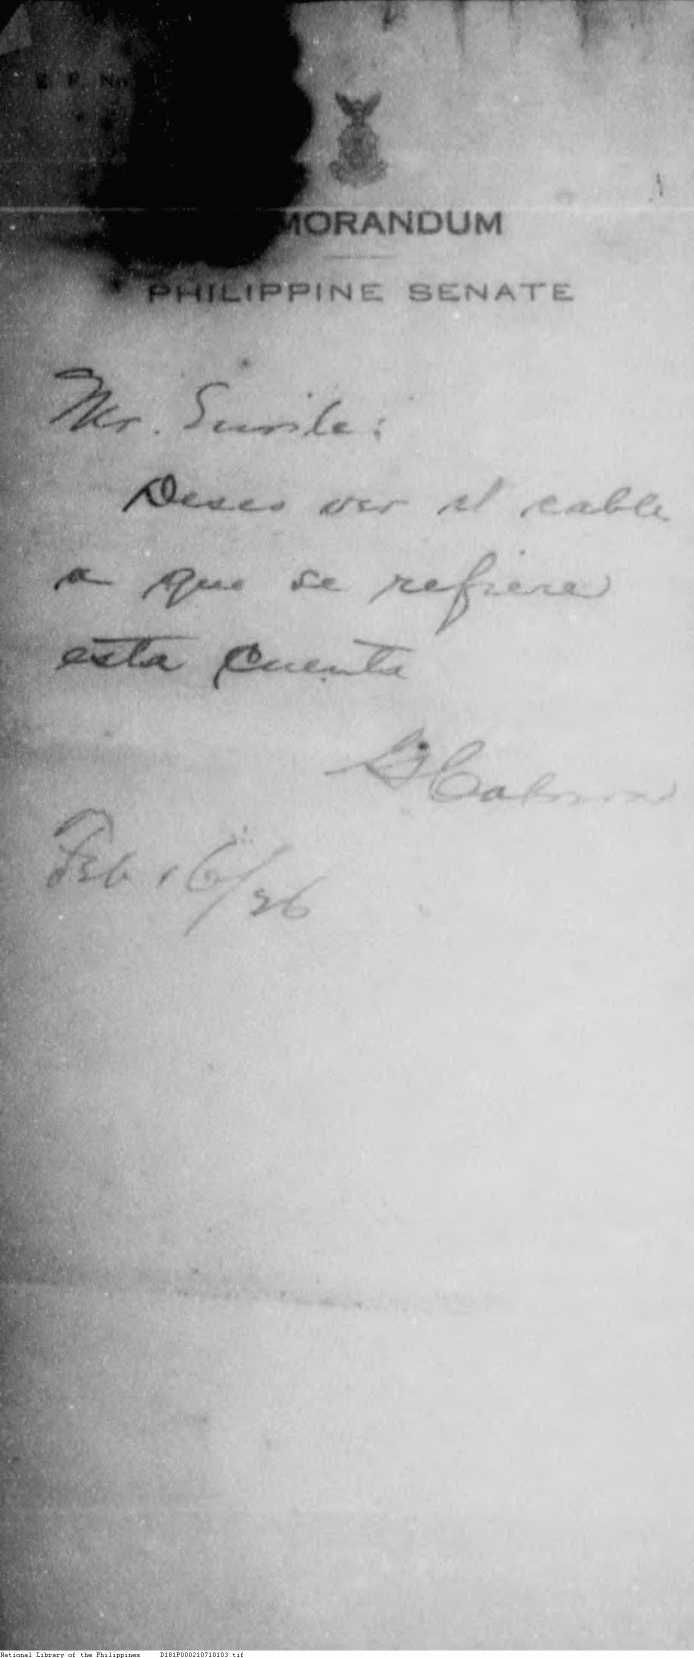 MORANDUM
PHILIPPINE SENATE
Mr.
Deseo ver el cable
a que se refiere
esta cuenta
Feb 16/26
National Library of the Philippines D181P000210710103.tif